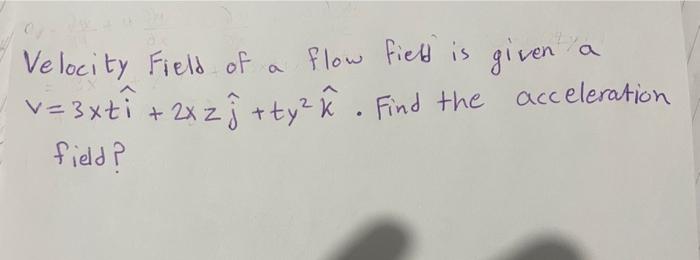 Velocity Field of a flow field is given a
v = 3xtî + 2xzĵ + ty²k̂ . Find the acceleration
field?